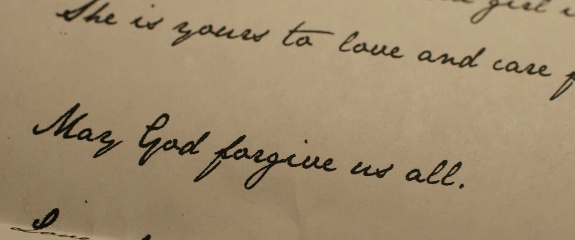 girl
She is yours to love and care
May God forgive us all.